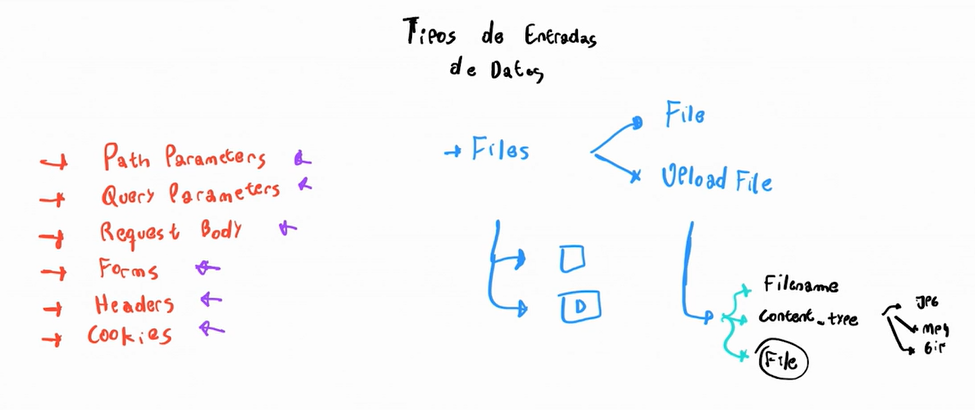 Tipos de Entradas
de Datos
Path Parameters
Query Parameters
Request Body
Forms
Headers
Cookies
Files
File
Upload File
D
Filename
Content_type
File
JPG
mp4
Gif